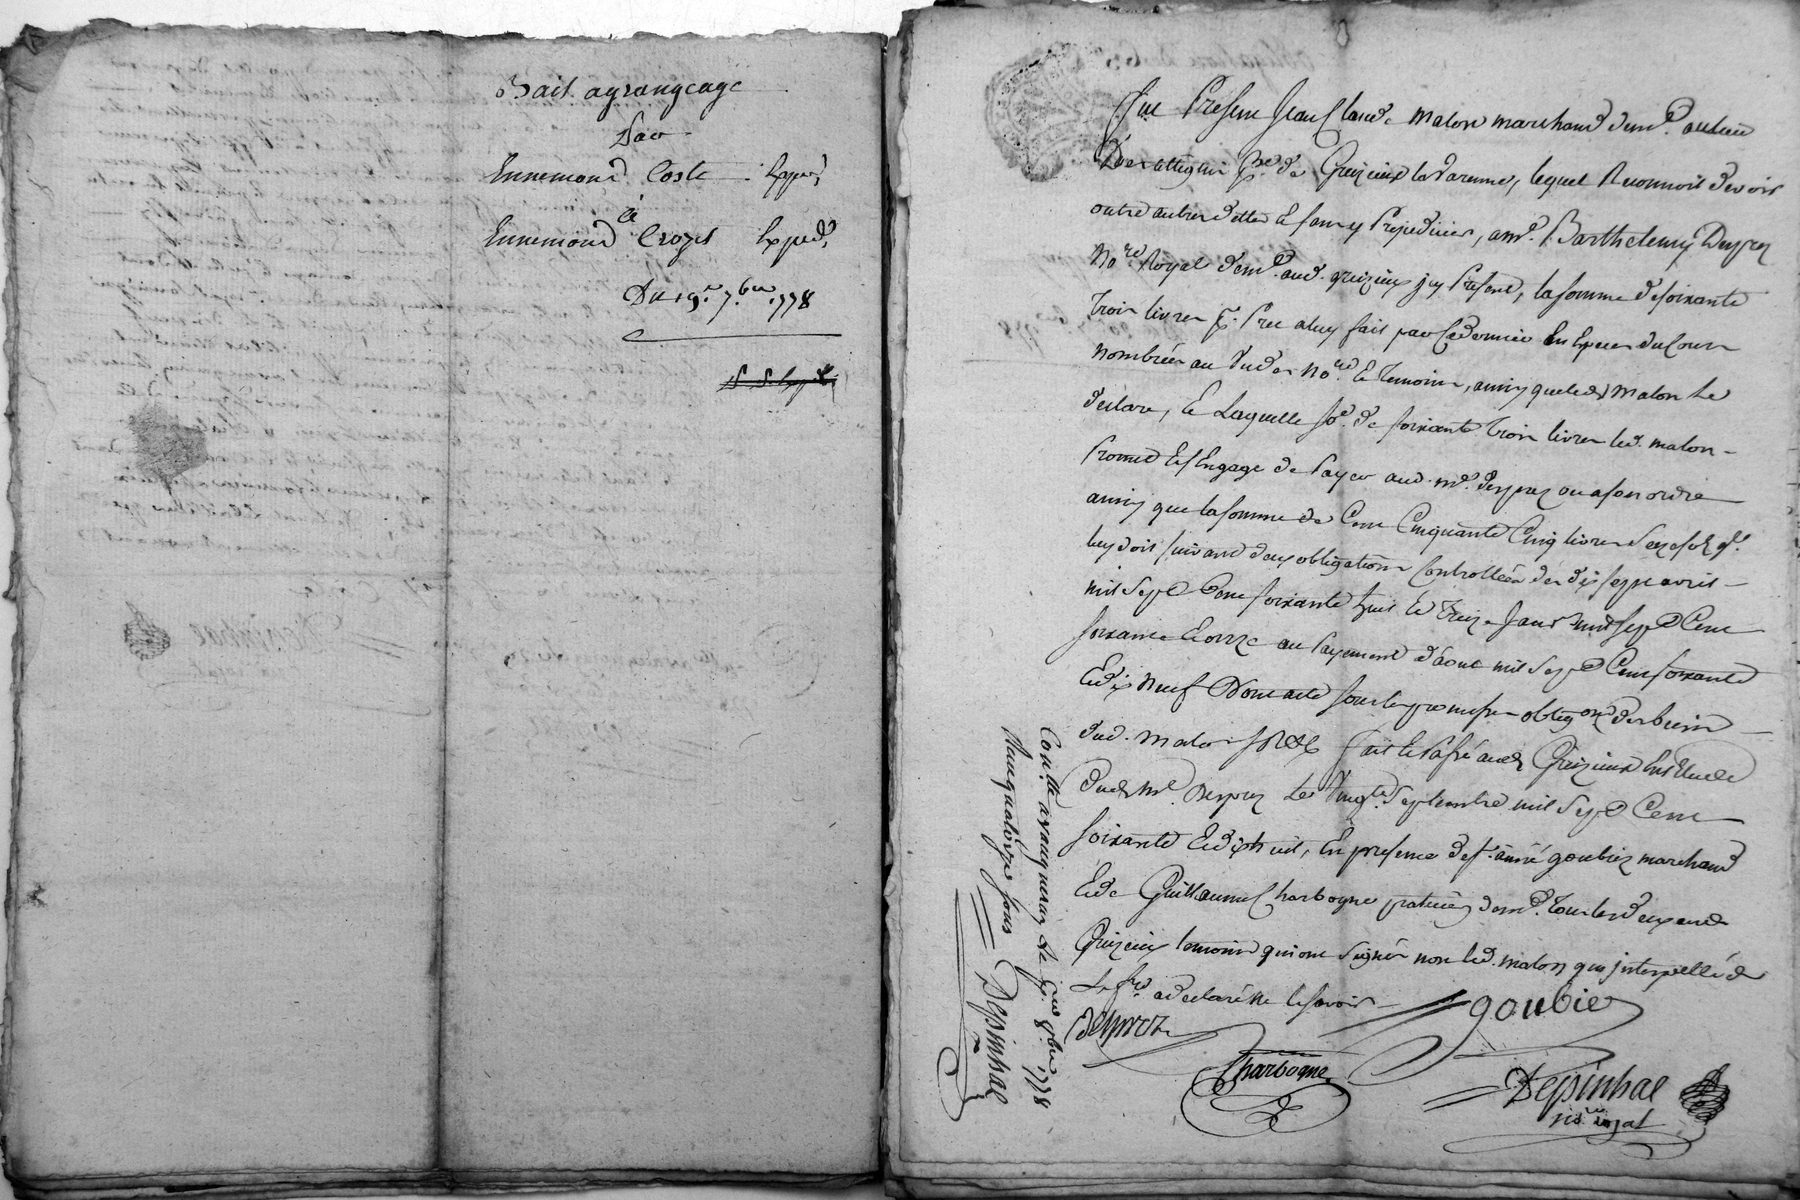 Bail agrangeage
Par
Ennemond Coste
à
Ennemond Crozet Exped.
Du 19.e 7.bre 1778
Fut Present Jean Claude Malon marchand dem.t au lieu
de Grezieux la Varenne, lequel Reconnoit devoir
outre autres dettes et sans y Prejudicier, a m.e Barthelemy Despres
No.re Royal dem.t aud. grezieux icy Present, la somme de soixante
trois livres p.r Pret a luy fait par ce dernier En Especes du Cours
nombrées au Vu des No.re Et Temoins, ainsy que led. Malon Le
declare, Et Laquelle so.e de soixante trois livres led. malon
Promet Et s'Engage de Payer aud. m.e Desprez ou a son ordre
ainsy que la somme de Cent Cinquante Cinq livres Seize sols q.l
luy doit suivant deux obligations Controllées des dix sept avril
mil sept Cent soixante huit Et Treize Janv. mil sept Cent
soixante Et onze au Payement d'août mil sept Cent soixante
Et dix Neuf Dont acte sous les promesses obligõns des biens
dud. Malon Fait Et Passé aud. Grezieux En l'Etude
dud. M.e Desprez Le Vingt Septembre mil Sept Cent
soixante Et dix huit, En presence de s.r aimé goubier marchand
Et de Guillaume Charbogne praticien dem.t Tous les deux aud.
Grezieux temoins qui ont Signé non led. malon qui interpellé de
Le f.re a declaré ne le savoir
Desprez
goubier
Charbogne
Depinhac
No.re royal
Con.lle a vaugneray le 8.bre 1778
Reçu quatorze sous
Depinhac